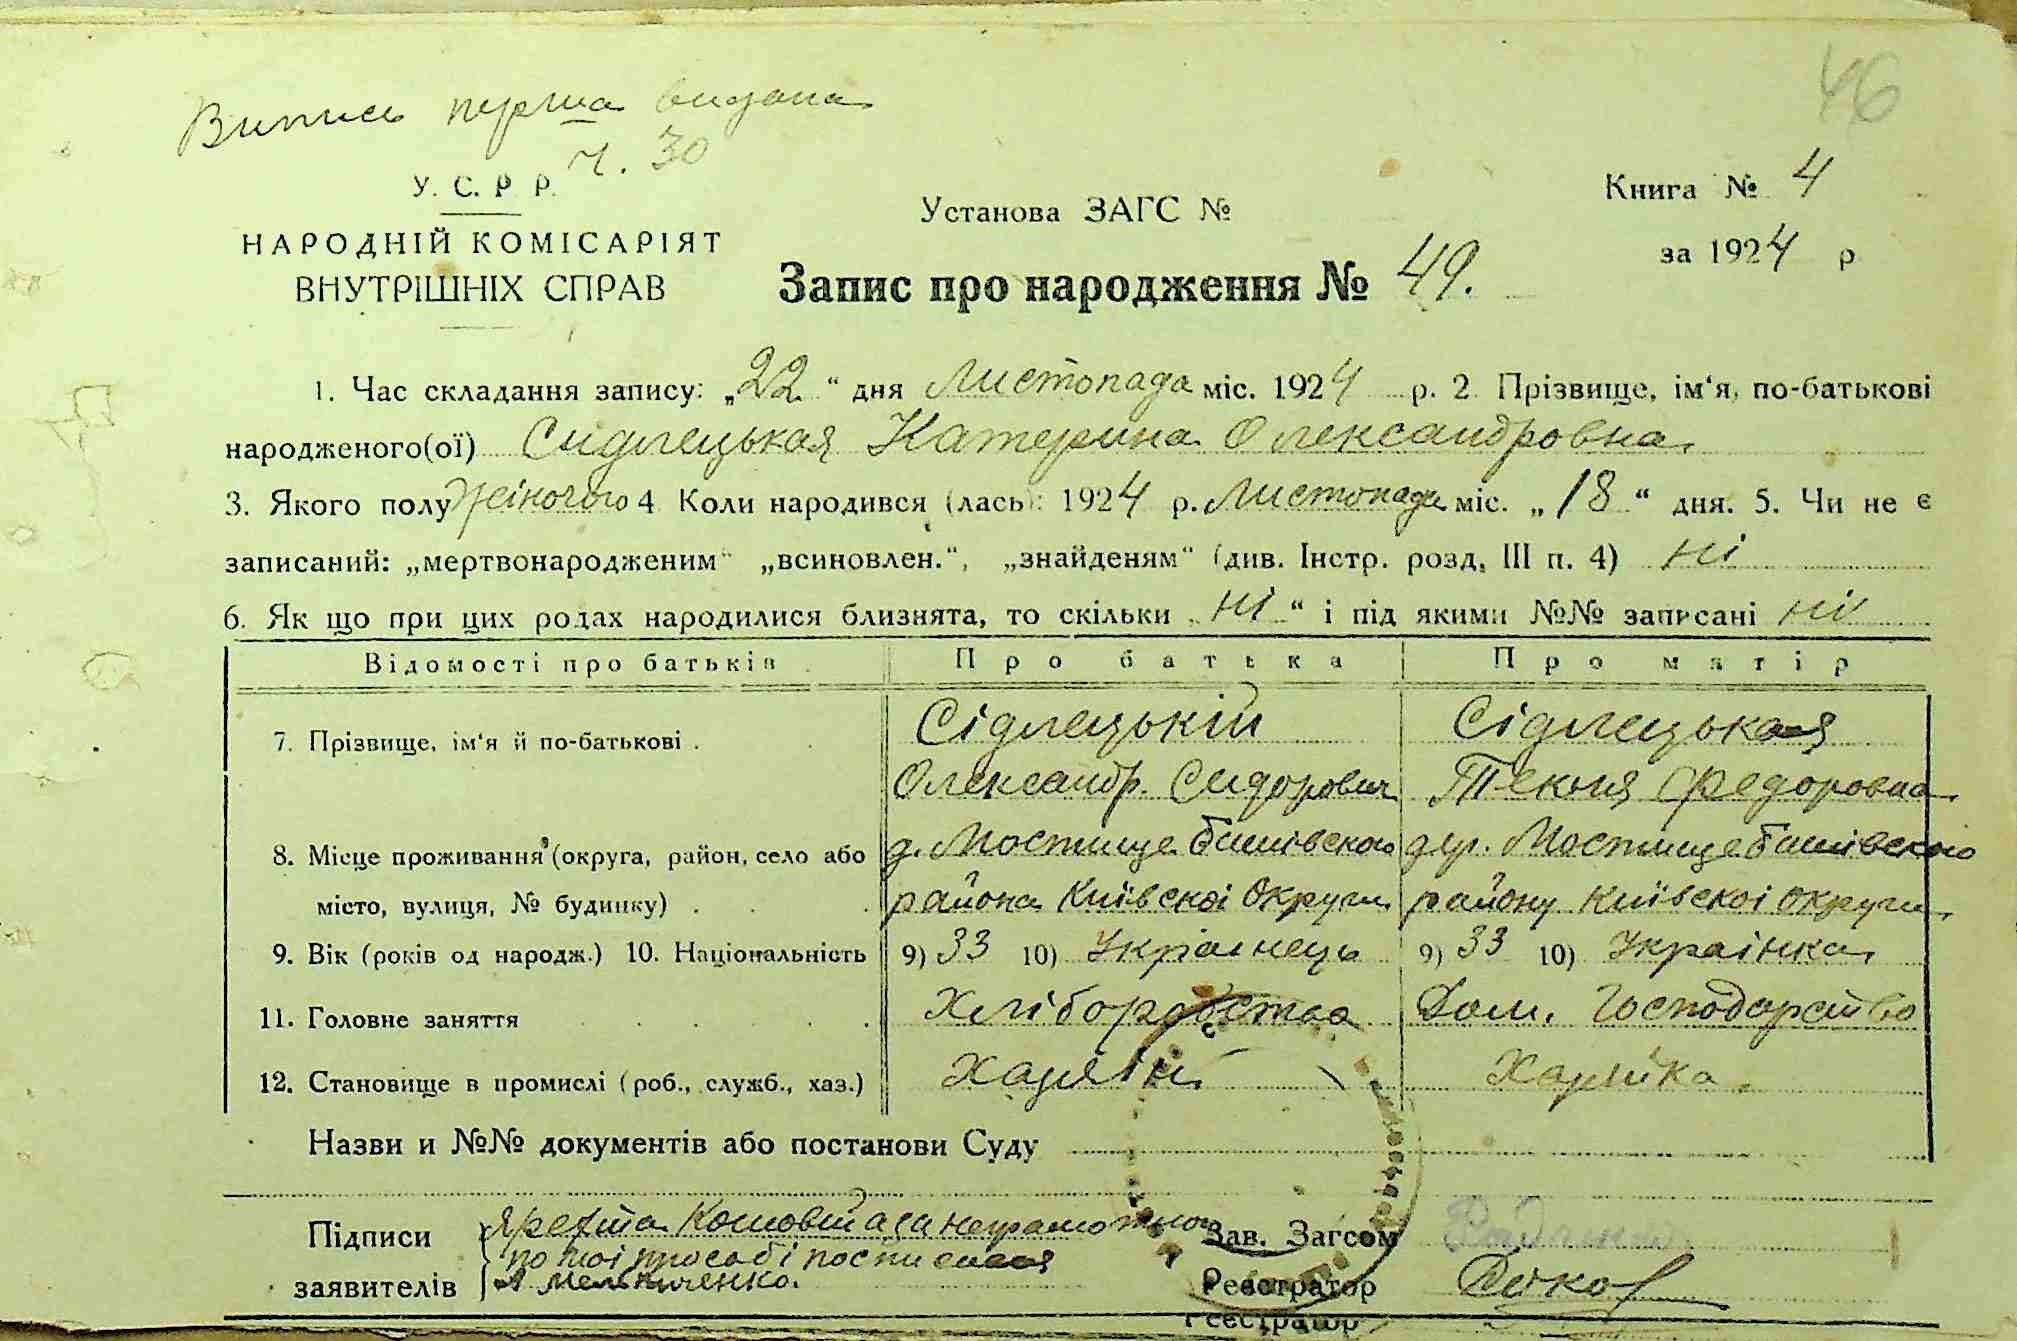 46
Випись перша видана
Ч. 30
У. С. Р Р.
НАРОДНІЙ КОМІСАРІЯТ
ВНУТРІШНІХ СПРАВ
Установа ЗАГС №
Книга № 4
за 1924 р
Запис про народження № 49.
1. Час складання запису: „22“ дня Листопада міс. 1924 р. 2. Прізвище, ім‘я, по-батькові
народженого(ої) Сидлецькая Катерина Олександровна
3. Якого полу Жіночого 4. Коли народився (лась): 1924 р. Листопада міс. „18“ дня. 5. Чи не є
записаний: „мертвонародженим“ „всиновлен.“, „знайденям“ (див. Інстр. розд, III п. 4) ні
6. Як що при цих родах народилися близнята, то скільки „ні“ і під якими №№ записані ні
Відомості про батьків Про батька Про матір
7. Прізвище, ім‘я й по-батькові . Сідлецькій Сідлецькая
Олександр. Сидорович Текля Федоровна
8. Місце проживання (округа, район, село або д. Мостище Бишівского дер. Мостище Бишівского
місто, вулиця, № будинку) . . . района Київскоі Округи району Київскоі округи
9. Вік (років од народж.) 10. Національність 9) 33 10) Украінець 9) 33 10) Украінка
11. Головне заняття Хлібороbство Дом. Господарство
12. Становище в промислі (роб., служб., хаз.) Хазяін Хазяйка
Назви и №№ документів або постанови Суду
Підписи
заявителів
неграмотна
А Мельниченко.
Зав. Загсом
Реєстратор
Реєстратор